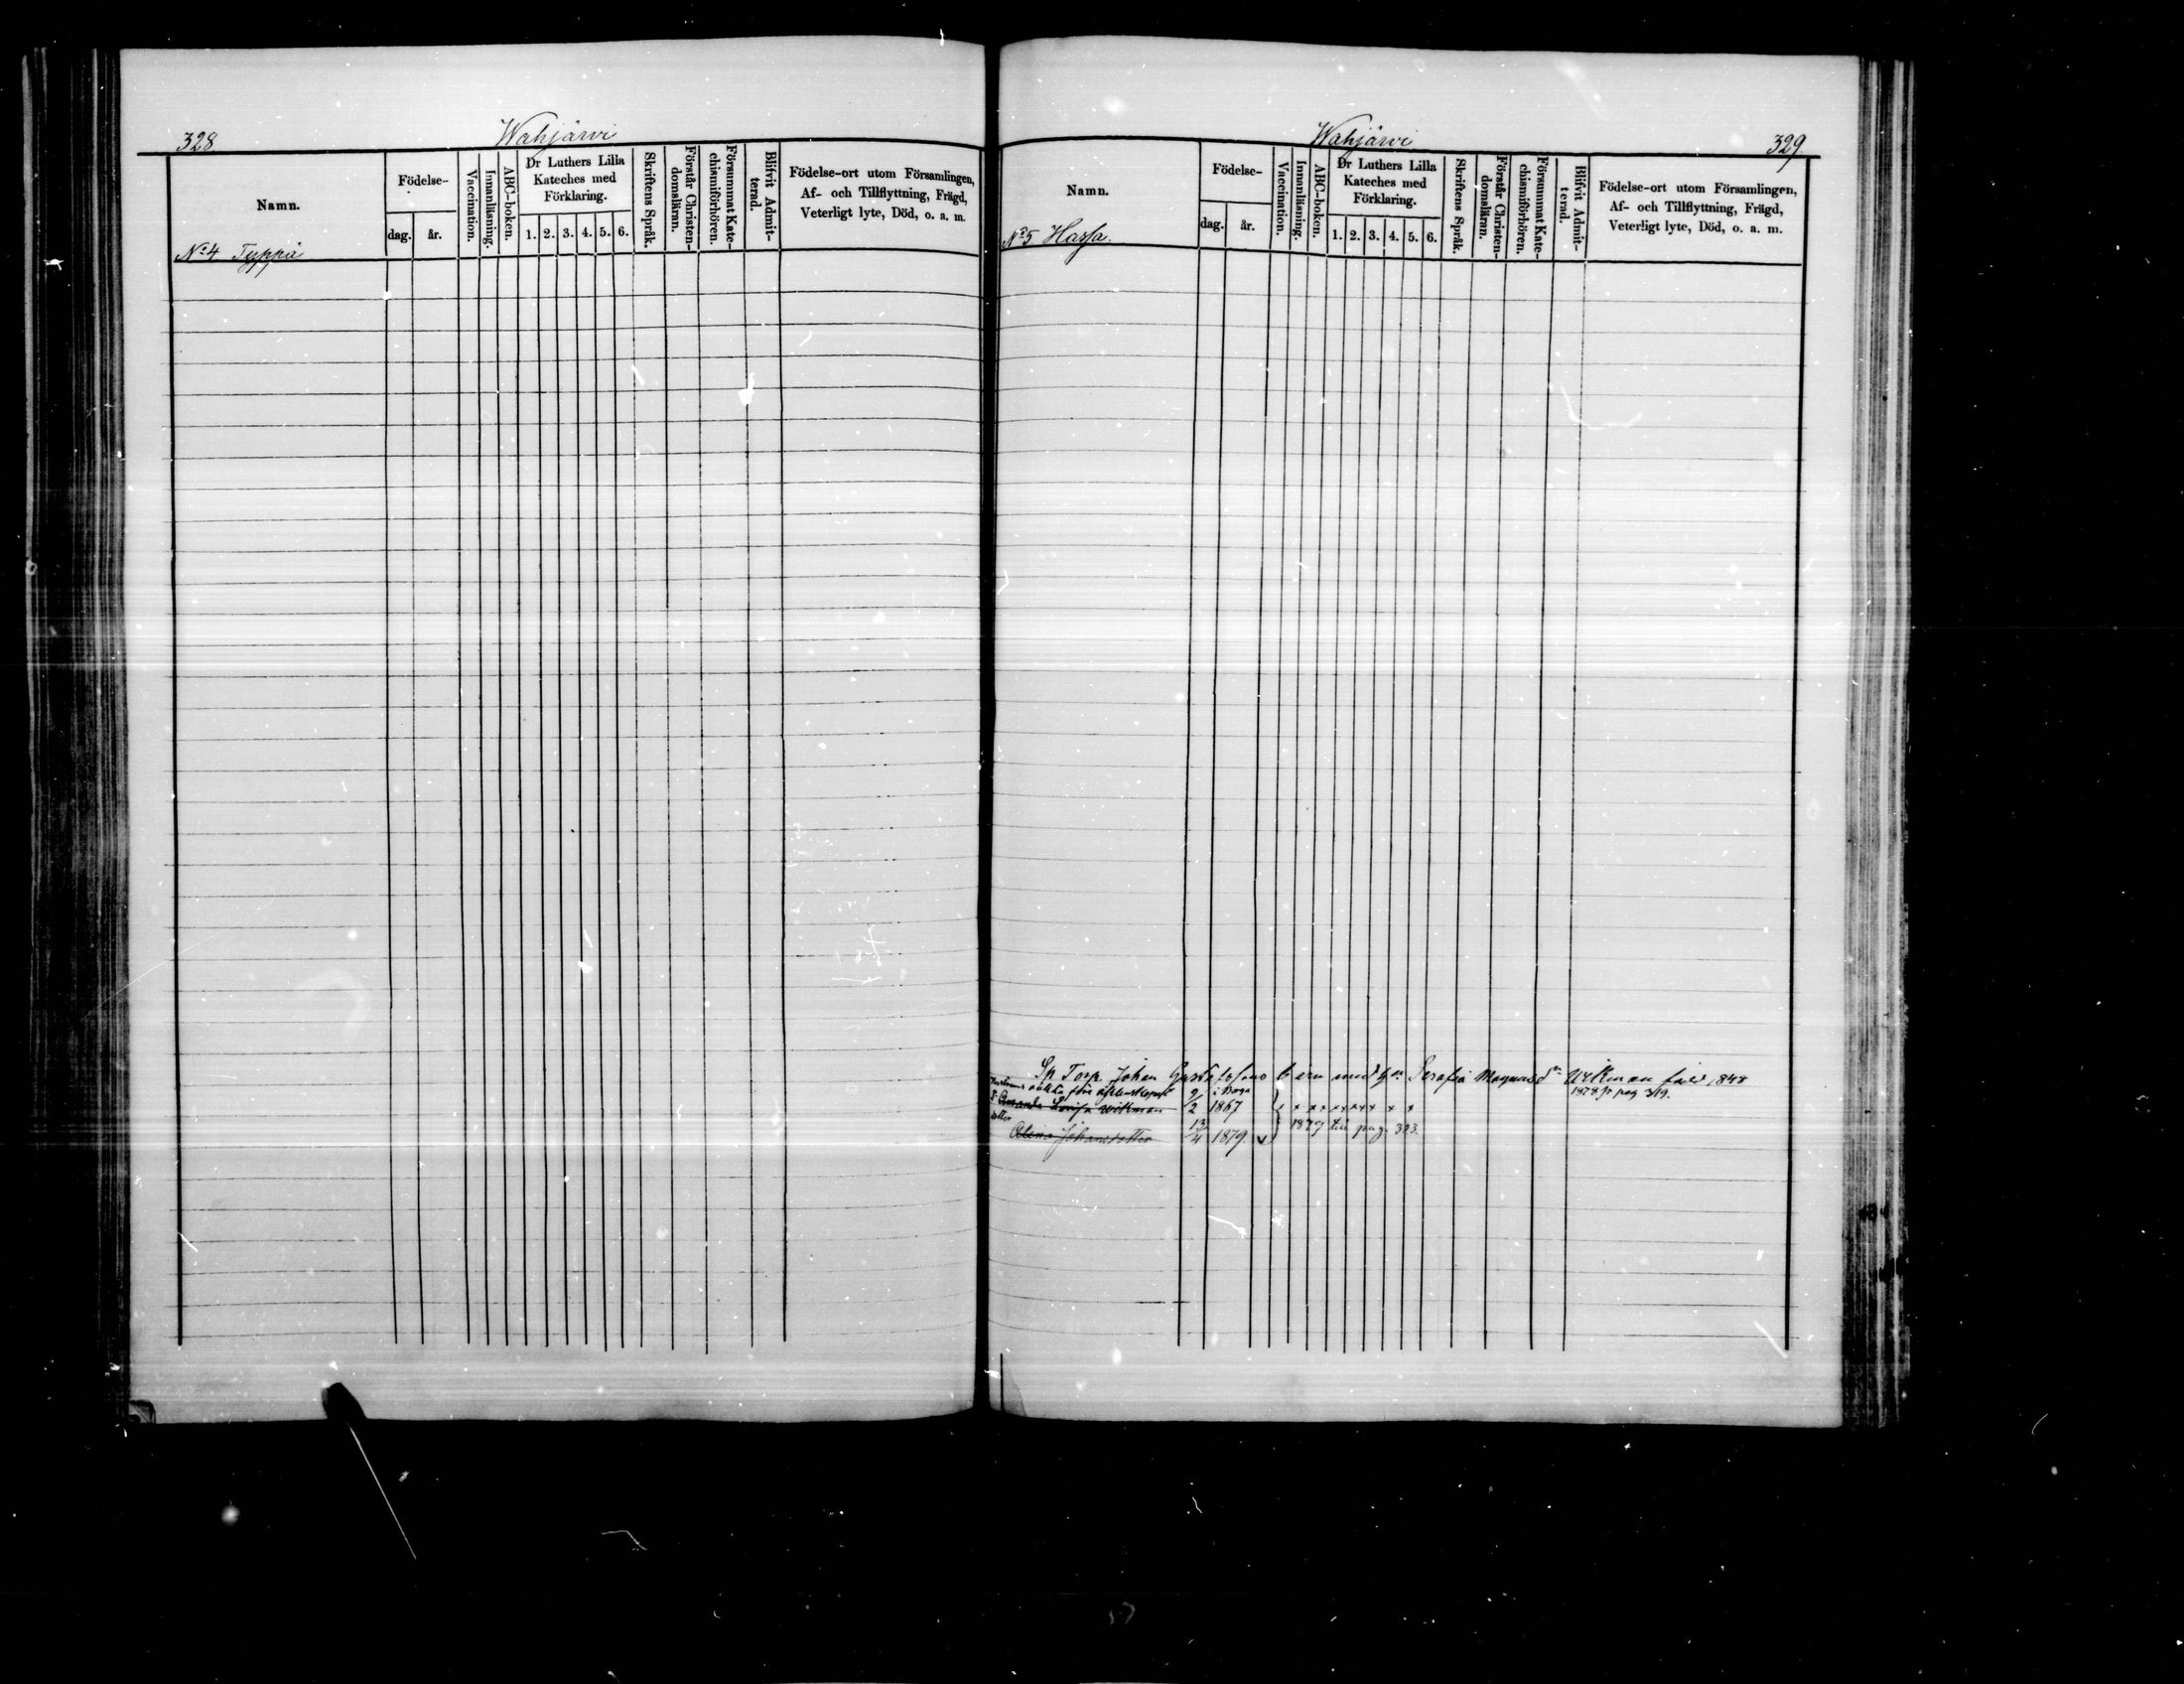 328
Wahjärvi
Namn.
Födelse-
dag.
år.
Vaccination.
Innanläsning.
ABC-boken.
Dr Luthers Lilla
Kateches med
Förklaring.
1. 2. 3. 4. 5. 6.
Skriftens Språk.
Förstår Christen-
domsläran.
Försummat Kate-
chismiförhören.
Blifvit Admit-
terad.
Födelse-ort utom Församlingen,
Af- och Tillflyttning, Frägd,
Veterligt lyte, Död, o. a. m.
No 4 Typpä
Wahjärvi
329.
Namn.
Födelse-
dag.
år.
Vaccination.
Innanläsning.
ABC-boken.
Dr Luthers Lilla
Kateches med
Förklaring.
1. 2. 3. 4. 5. 6.
Skriftens Språk.
Förstår Christen-
domsläran.
Försummat Kate-
chismiförhören.
Blifvit Admit-
terad.
Födelse-ort utom Församlingen,
Af- och Tillflyttning, Frägd,
Veterligt lyte, Död, o. a. m.
No 5 Hassa.
Torp Johan barn med Serafia Wikman född 1848
1878 fr pag 319.
Lovisa Wikman 9/2 1867 x x x x x x x x x
dotter
Johansdotter 13/4 1879. v } 1879 till pag. 323.